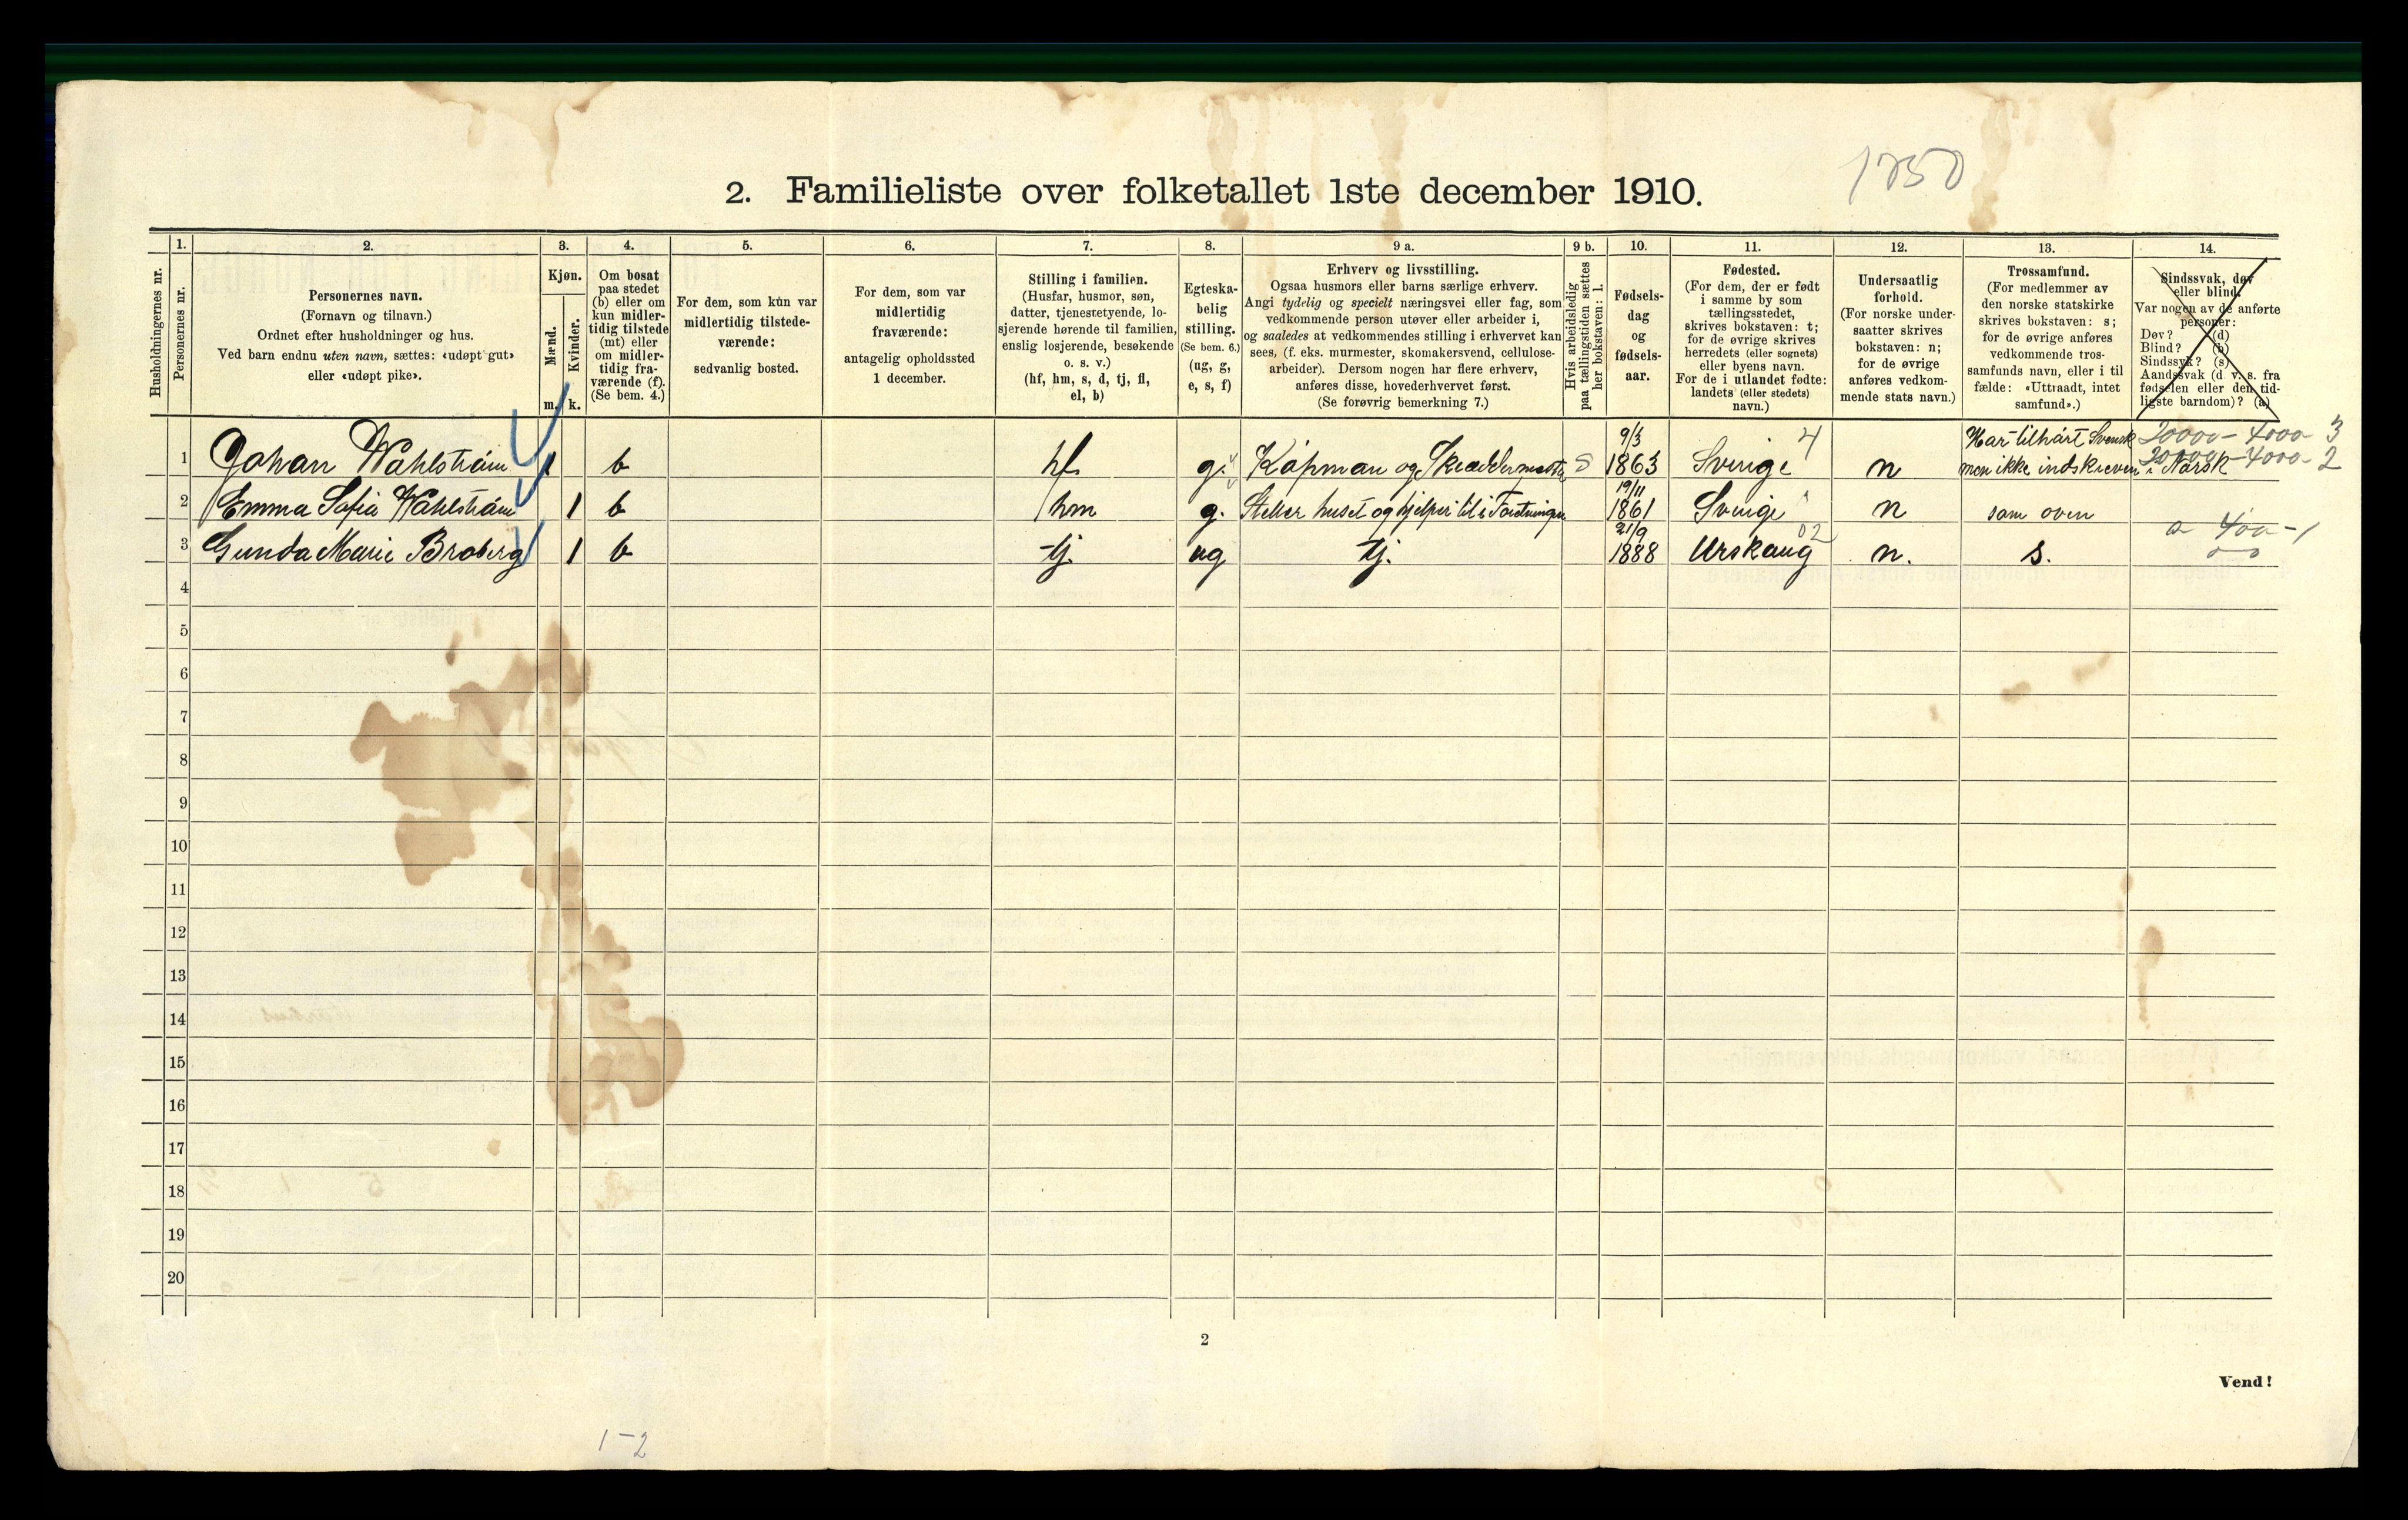 1250
2. Familieliste over folketallet 1ste december 1910.
Husholdningernes nr.
1.
Personernes nr.
2.
Personernes navn.
(Fornavn og tilnavn.)
Ordnet efter husholdninger og hus.
Ved barn endnu uten navn, sættes: «udøpt gut»
eller «udøpt pike».
3.
Kjøn.
Mænd.
Kvinder.
m. k.
4.
Om bosat
paa stedet
(b) eller om
kun midler-
tidig tilstede
(mt) eller
om midler-
tidig fra-
værende (f).
(Se bem. 4.)
5.
For dem, som kun var
midlertidig tilstede-
værende:
sedvanlig bosted.
6.
For dem, som var
midlertidig
fraværende:
antagelig opholdssted
1 december.
7.
Stilling i familien.
(Husfar, husmor, søn,
datter, tjenestetyende, lo-
sjerende hørende til familien,
enslig losjerende, besøkende
o. s. v.)
(hf, hm, s, d, tj, fl,
el, b)
8.
Egteska-
belig
stilling.
(Se bem. 6.)
(ug, g,
e, s, f)
9 a.
Erhverv og livsstilling.
Ogsaa husmors eller barns særlige erhverv.
Angi tydelig og specielt næringsvei eller fag, som
vedkommende person utøver eller arbeider i,
og saaledes at vedkommendes stilling i erhvervet kan
sees, (f. eks. murmester, skomakersvend, cellulose-
arbeider). Dersom nogen har flere erhverv,
anføres disse, hovederhvervet først.
(Se forøvrig bemerkning 7.)
9 b.
Hvis arbeidsledig
paa tællingstiden sættes
her bokstaven: l.
10.
Fødsels-
dag
og
fødsels-
aar.
11.
Fødested.
(For dem, der er født
i samme by som
tællingsstedet,
skrives bokstaven: t;
for de øvrige skrives
herredets (eller sognets)
eller byens navn.
For de i utlandet fødte:
landets (eller stedets)
navn.)
12.
Undersaatlig
forhold.
(For norske under-
saatter skrives
bokstaven: n;
for de øvrige
anføres vedkom-
mende stats navn.)
13.
Trossamfund.
(For medlemmer av
den norske statskirke
skrives bokstaven: s;
for de øvrige anføres
vedkommende tros-
samfunds navn, eller i til
fælde: «Uttraadt, intet
samfund».)
14.
Sindssvak, døv
eller blind.
Var nogen av de anførte
personer:
Døv? (d)
Blind? (b)
Sindssyk? (s)
Aandssvak (d v. s. fra
fødselen eller den tid-
ligste barndom)? (a)
1 Johan Wahlström 1 b hf g. Köpman og Skræddermester S 9/3 1863 Sverige 4 n Har tilhört Svensk men ikke indskreven i Norsk 20000 - 4000 - 3
20000 - 4000 - 2
2 Emma Sofia Wahlström 1 b hm g. Steller huset og hjelper til i Forretningen 19/11 1861 Sverige n som oven
3 Gunda Marie Broberg 1 b tj. ug tj. 21/9 1888 Urskaug 02 n. s. 0 400 - 1
4
5
6
7
8
9
10
11
12
13
14
15
16
17
18
19
20
2
Vend!
1-2